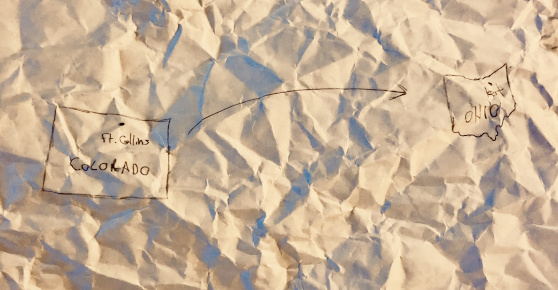 Ft. Collins
COLORADO
OHIO